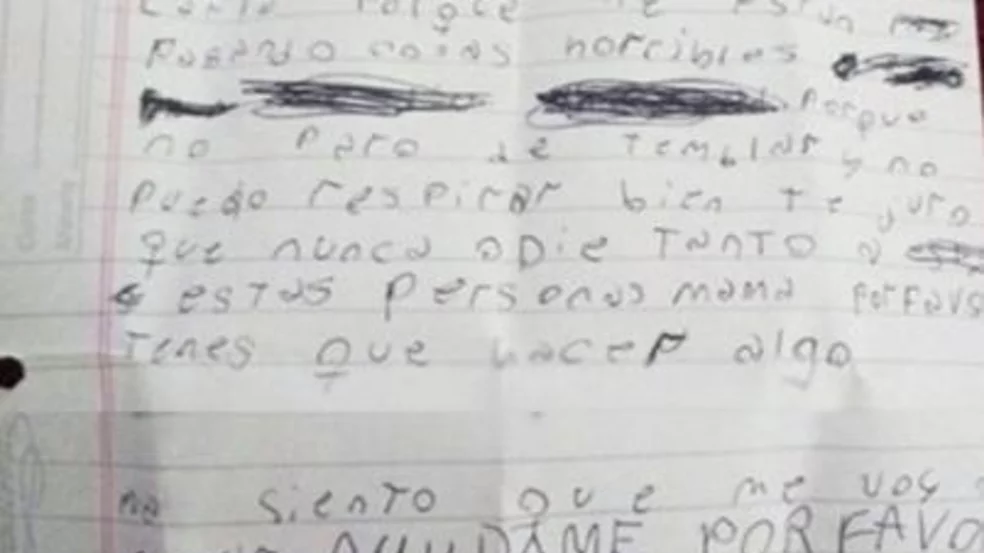 porque me están
pasando cosas horribles
porque
no paro de temblar y no
puedo respirar bien te juro
que nunca odie TANTO a
estas personas mama porfavo
Tenes que hacer algo
siento que me voy
AYUDAME PORFAVO